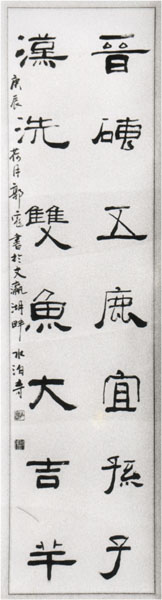 晋磚五鹿宜孫子
漢洗雙魚大吉羊
庚辰荷月郭書於文瀛湖畔水泊寺